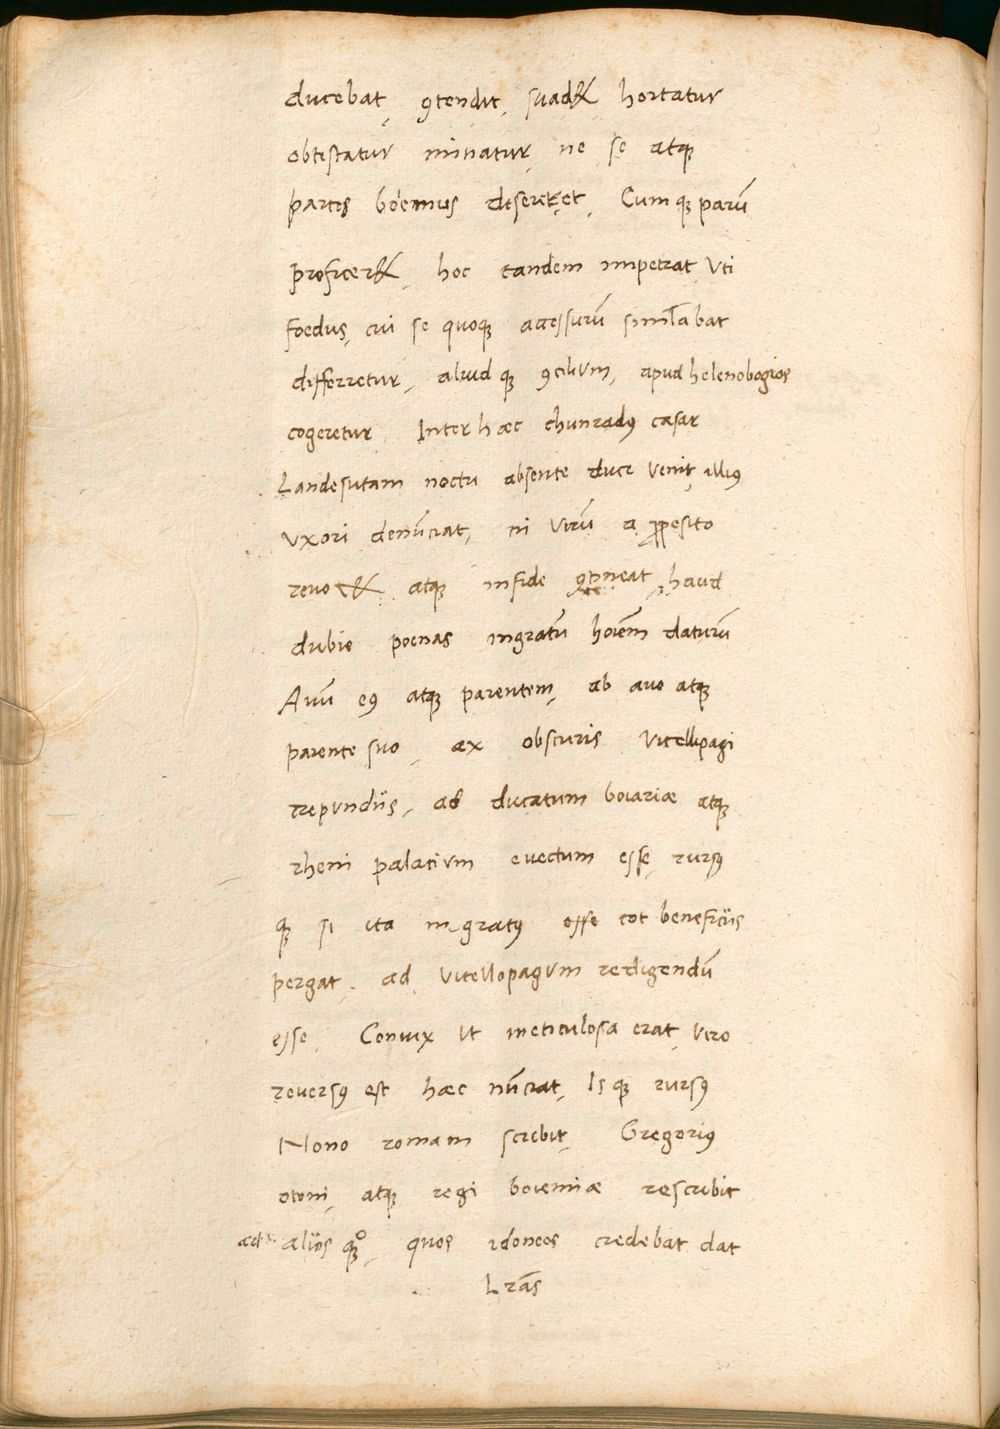 ducebat, ꝯtendit, suad& hortatur
obtestatur minatur, ne se atqꝫ
partes boemus desereret, Cum qꝫ parū
proficer&, hoc tandem impetrat Vti
foedus, cui se quoqꝫ accessurū simlabat
differretur, aliud qꝫ ꝯcilium, apud helenobogios
cogeretur Inter hæc chunradꝰ cæsar
Landesutam noctu absente duce Venit, illiꝰ
Vxori denūciat, ni Virū a ꝓposito
reuo& atqꝫ in fide haud
dubie poenas ingratū hoiēm daturū
Auū eꝰ atqꝫ parentem, ab auo atqꝫ
parente suo, æx obscuris Vitellipagi
repundiis, ad ducatum boiariæ atqꝫ
rheni palatium euectum esse, rursꝰ
qꝫ si ita in gratꝰ esse tot beneficiis
pergat, ad Vitellopagum redigendū
esse, Coniux Vt meticulosa erat, Viro
reuersꝰ est hæc nūciat, Is qꝫ rursꝰ
Nono romam scribit, Gregoriꝰ
otoni, atqꝫ regi boiemiæ rescribit
ad aliis qꝫ, quos idoneos credebat dat
Lrās